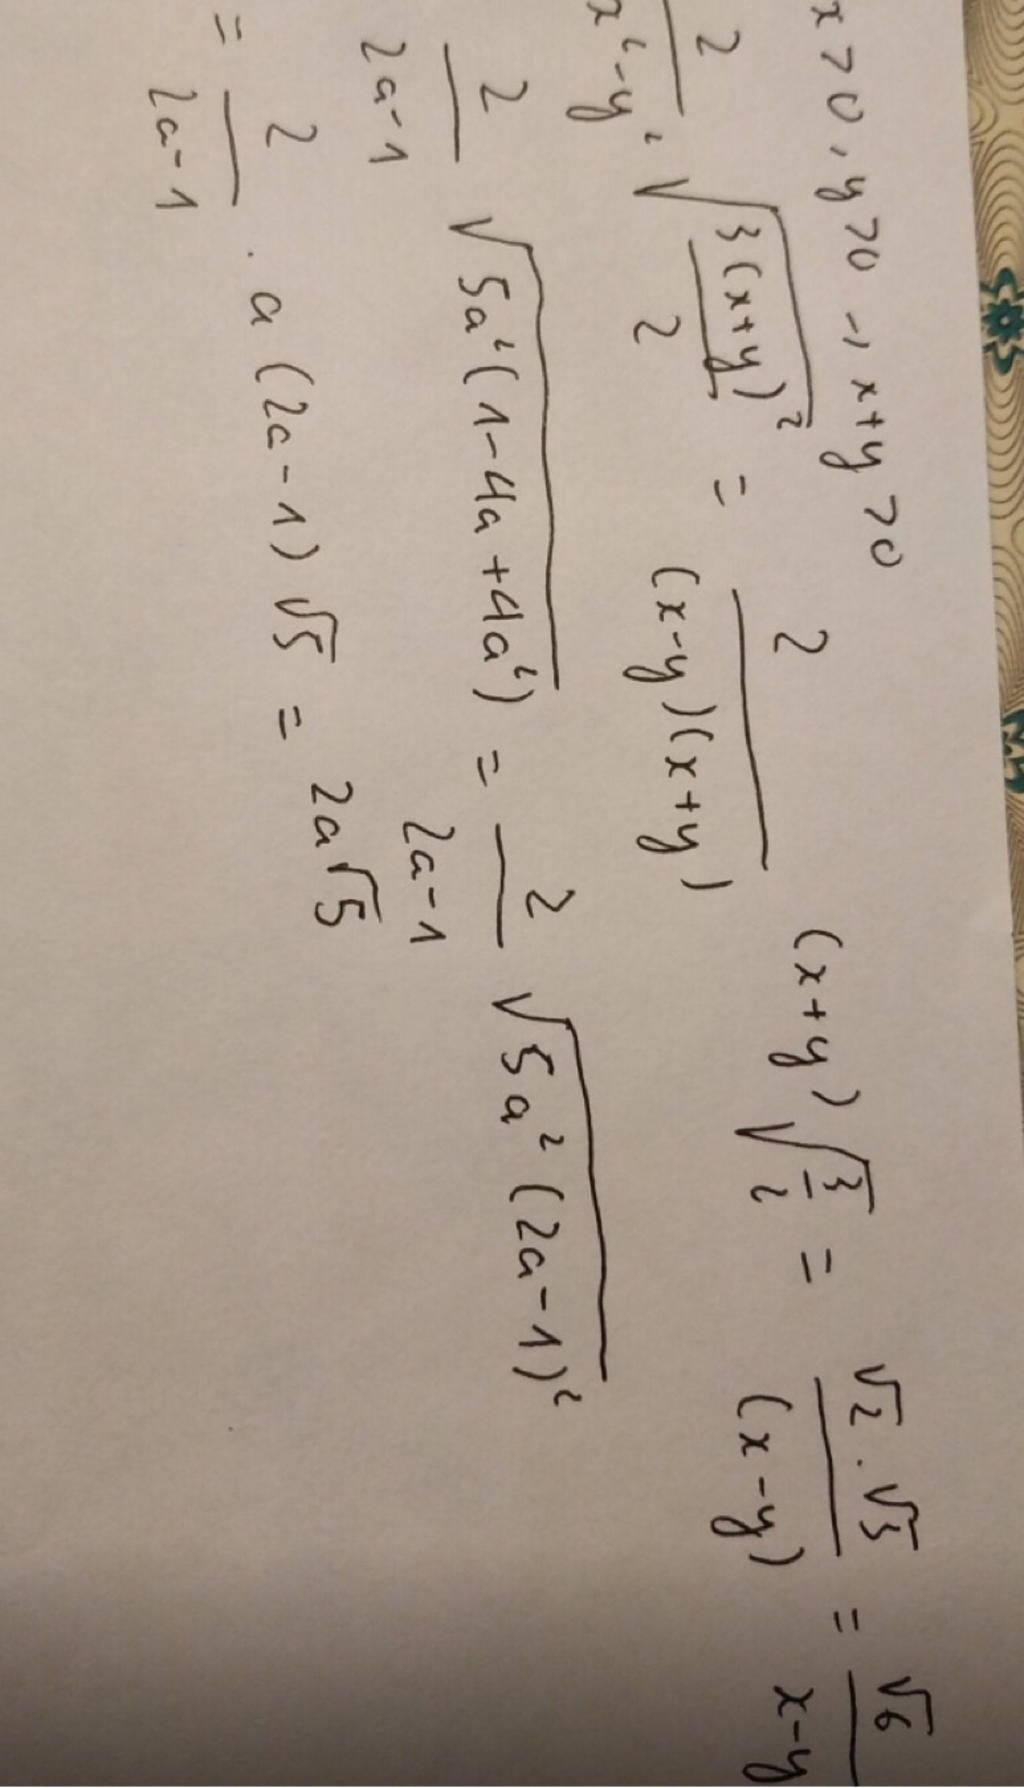 x>0, y>0 → x+y>0
2/(x²-y²) √(3(x+y)²/2) = 2/((x-y)(x+y)) (x+y) √(3/2) = √2·√3/(x-y) = √6/(x-y)
2/(2a-1) √(5a²(1-4a+4a²)) = 2/(2a-1) √(5a²(2a-1)²)
= 2/(2a-1) · a(2a-1)√5 = 2a√5